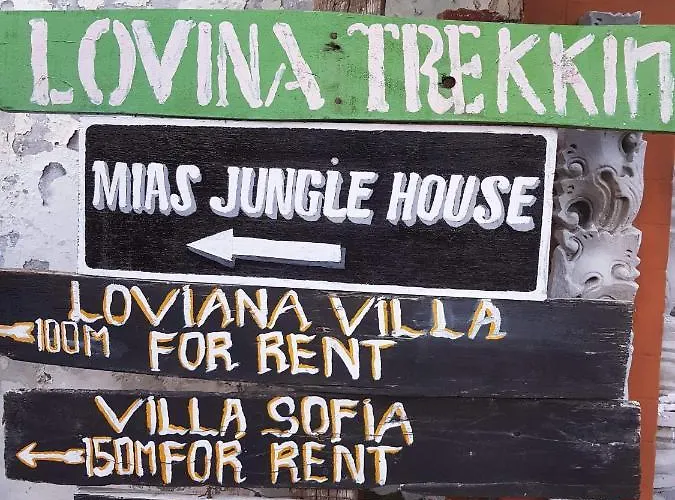 LOVINA TREKKIN
MIAS JUNGLE HOUSE
LOVIANA VILLA
100M FOR RENT
VILLA SOFIA
150M FOR RENT